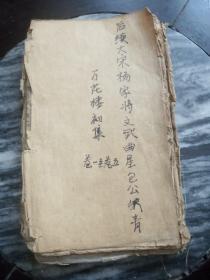 后续大宋杨家将文武曲星包公狄青
万花楼初集
卷一至卷五